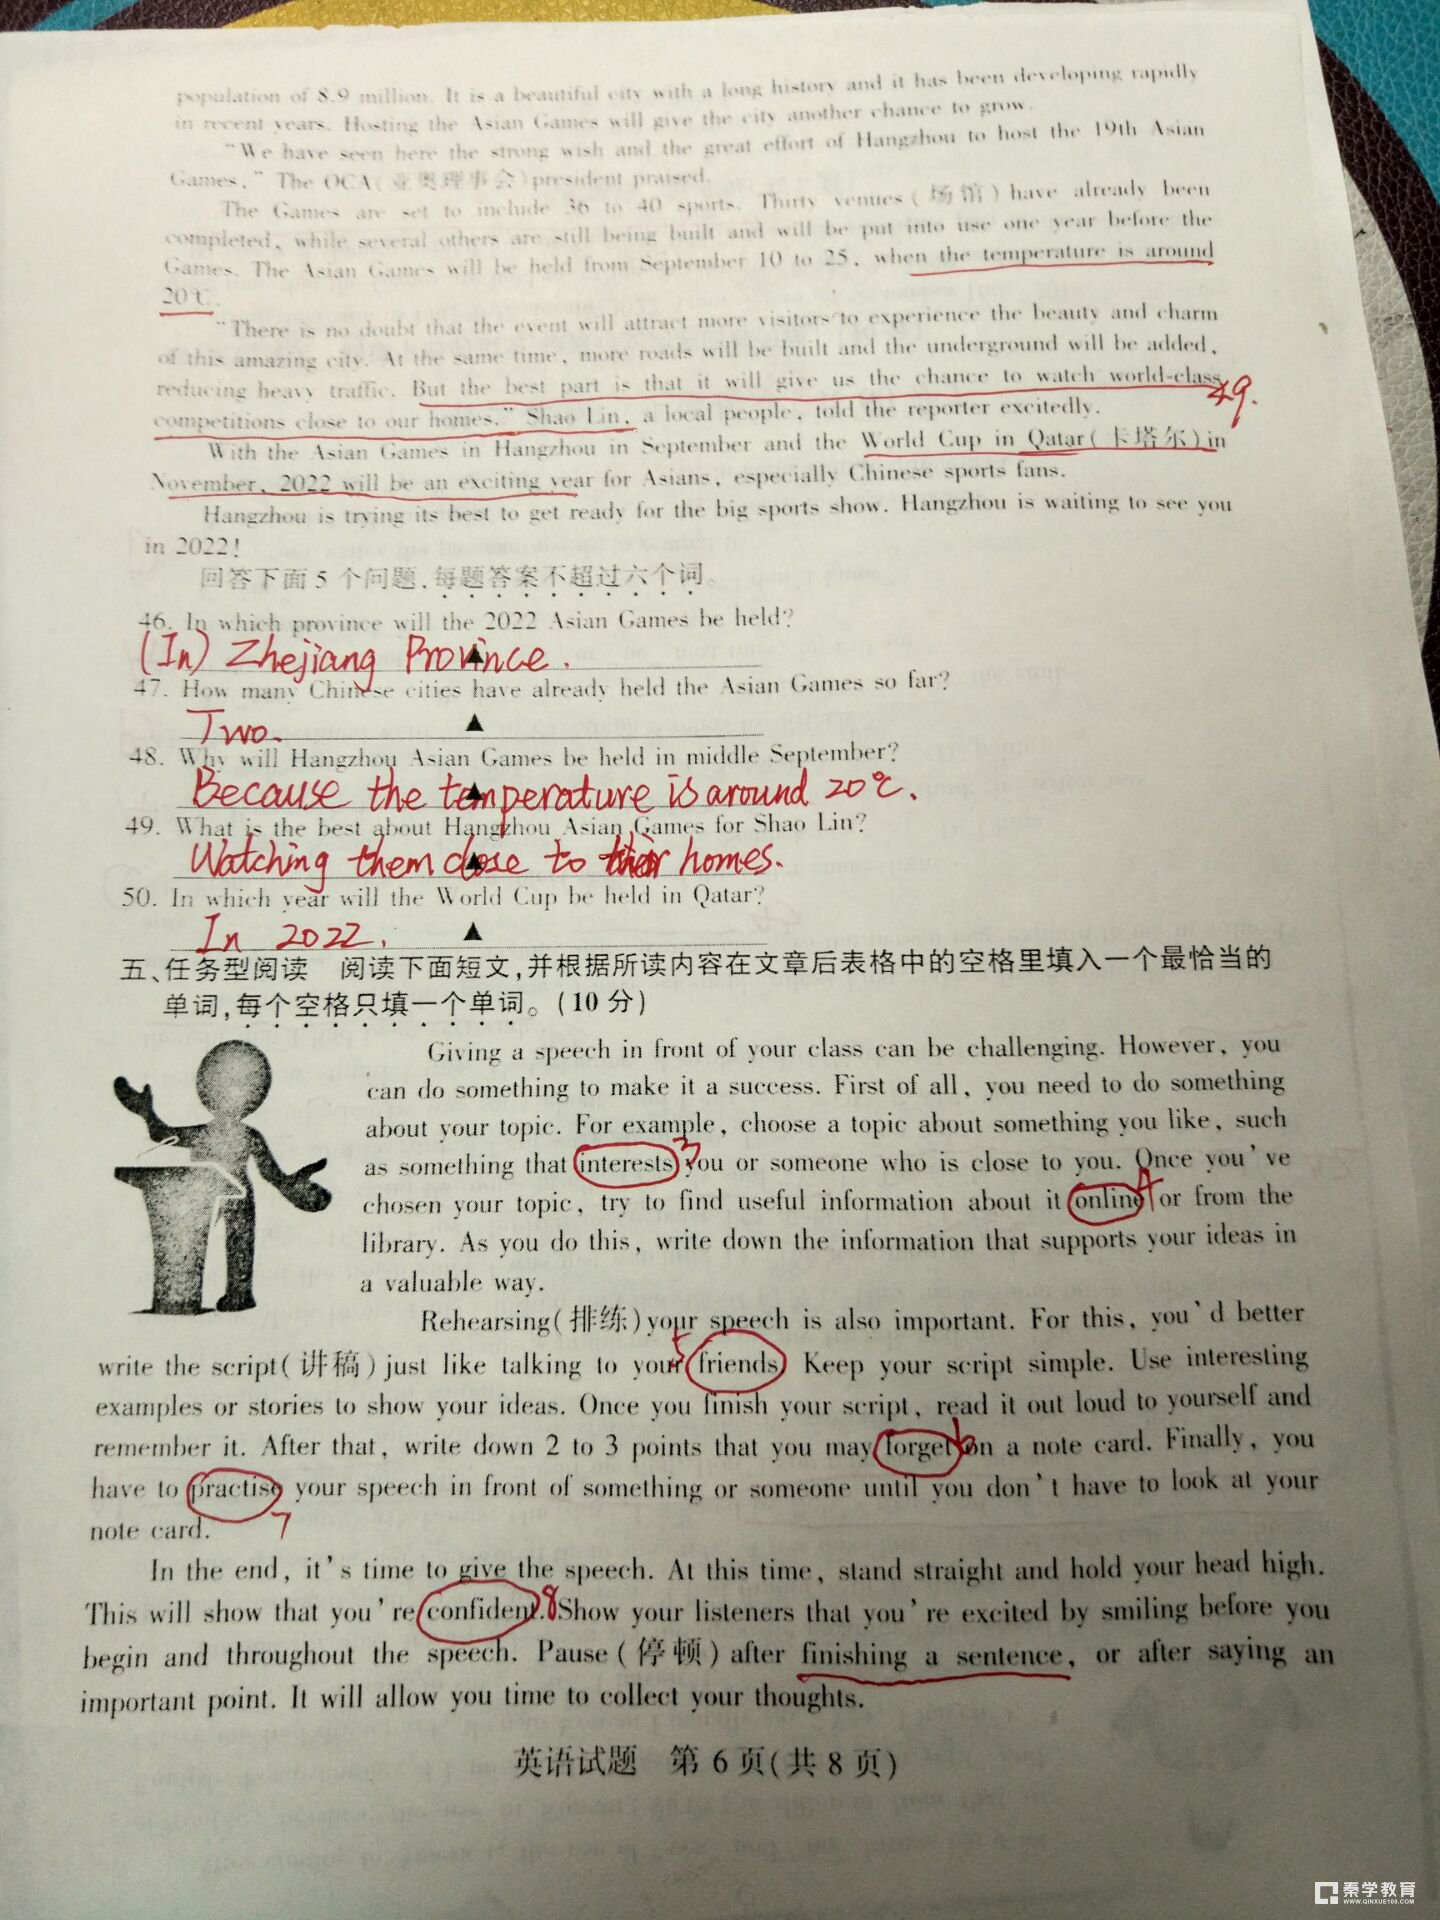 population of 8.9 million. It is a beautiful city with a long history and it has been developing rapidly
in recent years. Hosting the Asian Games will give the city another chance to grow.
"We have seen here the strong wish and the great effort of Hangzhou to host the 19th Asian
Games," The OCA(亚奥理事会)president praised.
The Games are set to include 36 to 40 sports. Thirty venues(场馆)have already been
completed, while several others are still being built and will be put into use one year before the
Games. The Asian Games will be held from September 10 to 25, when the temperature is around
20℃.
"There is no doubt that the event will attract more visitors to experience the beauty and charm
of this amazing city. At the same time, more roads will be built and the underground will be added,
reducing heavy traffic. But the best part is that it will give us the chance to watch world-class
49.
competitions close to our homes." Shao Lin, a local people, told the reporter excitedly.
With the Asian Games in Hangzhou in September and the World Cup in Qatar(卡塔尔)in
November, 2022 will be an exciting year for Asians, especially Chinese sports fans.
Hangzhou is trying its best to get ready for the big sports show. Hangzhou is waiting to see you
in 2022!
回答下面5个问题,每题答案不超过六个词。
46. In which province will the 2022 Asian Games be held?
(In) Zhejiang Province. ▲
47. How many Chinese cities have already held the Asian Games so far?
Two. ▲
48. Why will Hangzhou Asian Games be held in middle September?
Because the temperature is around 20℃. ▲
49. What is the best about Hangzhou Asian Games for Shao Lin?
Watching them close to their homes. ▲
50. In which year will the World Cup be held in Qatar?
In 2022. ▲
五、任务型阅读 阅读下面短文,并根据所读内容在文章后表格中的空格里填入一个最恰当的
单词,每个空格只填一个单词。(10分)
Giving a speech in front of your class can be challenging. However, you
can do something to make it a success. First of all, you need to do something
about your topic. For example, choose a topic about something you like, such
as something that interests 3 you or someone who is close to you. Once you've
chosen your topic, try to find useful information about it online 4 or from the
library. As you do this, write down the information that supports your ideas in
a valuable way.
Rehearsing(排练)your speech is also important. For this, you'd better
write the script(讲稿)just like talking to your 5 friends. Keep your script simple. Use interesting
examples or stories to show your ideas. Once you finish your script, read it out loud to yourself and
remember it. After that, write down 2 to 3 points that you may forget 6 on a note card. Finally, you
have to practise 7 your speech in front of something or someone until you don't have to look at your
note card.
In the end, it's time to give the speech. At this time, stand straight and hold your head high.
This will show that you're confident. 8 Show your listeners that you're excited by smiling before you
begin and throughout the speech. Pause(停顿)after finishing a sentence, or after saying an
important point. It will allow you time to collect your thoughts.
英语试题 第6页(共8页)
秦学教育
WWW.QINXUE100.COM